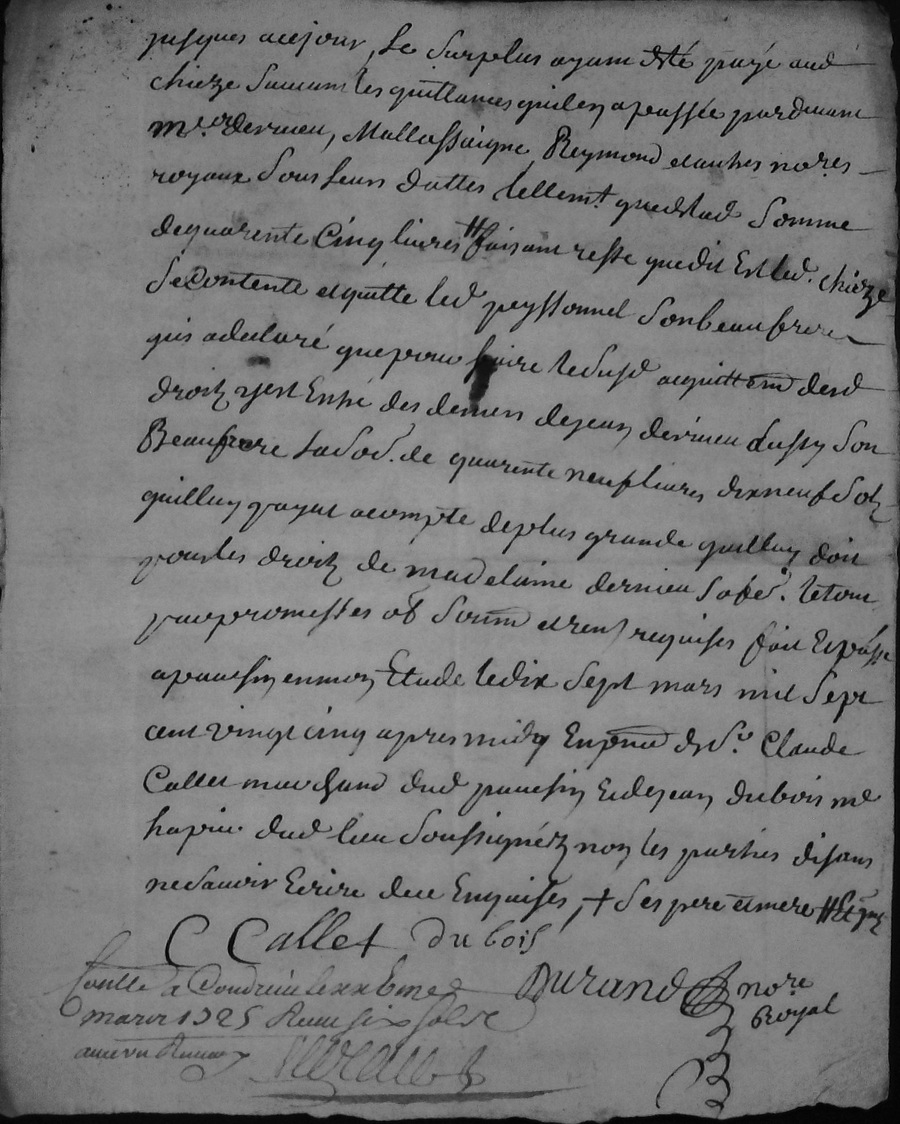 jusques acejour, Le Surplus ayant été payé aud
chieze Suivant les quittances quilen a passée pardevant
mers dervieu, Mallassaigne, Reymond et autres nores
royaux Sous leurs dattes tellemt. que de lad Somme
de quarente Cinq livres # faisant reste que dit Est led. chieze
Se contente et quitte led peyssonnel Son beaufrere
qui a declaré que pour faire le Susd acquittemt desd
droitz yest Entré des deniers de jean dervieu aussy Son
Beaufrere la Sod. de quarente neuf livres dix neuf Solz
quilluy paye acompte de plus grande quilluy doit
pour les droitz de madelaine dervieu Sa . le tout
par promesses ob Soum et ren requises fait Et passé
a paussin en mon Etude le dix Sept mars mil Sept
cent vingt cinq apres midy En pnce de Sr. Claude
Callet marchand dud paussin Et de jean dubois me
dud lieu Soussignéz non les parties disans
ne Savoir Ecrire de ce Enquises, + Ses pere et mere #
C Callet du bois
Conllé a Condrieu le xx Eme
Durand nore
Royal
marcs 1725 Receu Six Solz